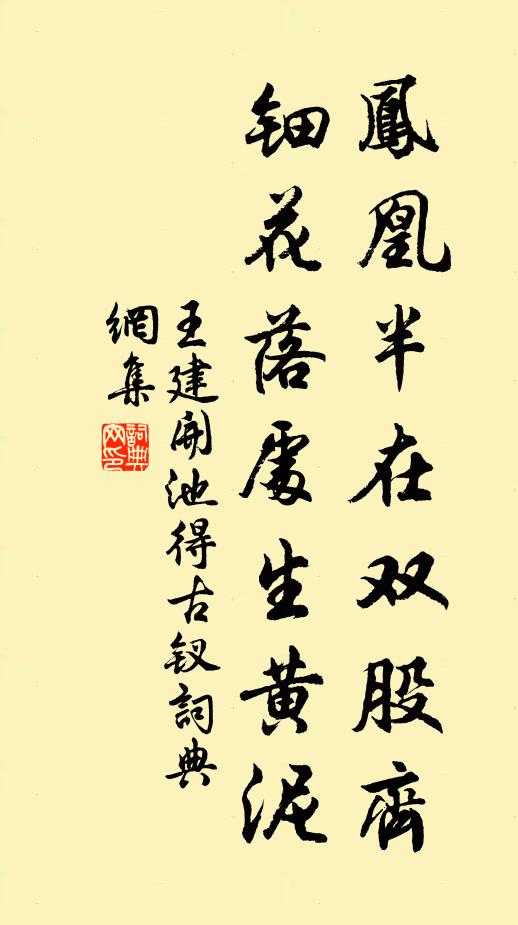 鳳凰半在双股齊
鈿花落處生黄泥
王建開池得古釵詞典
網集
詞典
网印